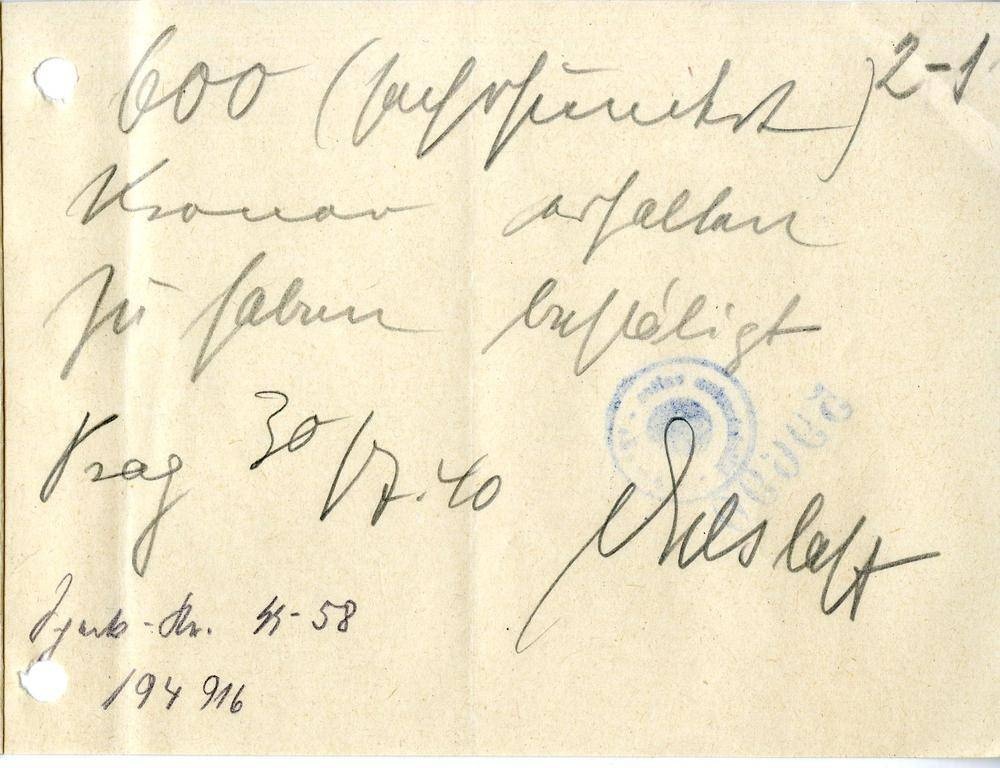 600 (sechshundert) 2-1
Kronen erhalten
zu haben bestätigt
Prag 30/7.40
-Nr. 4-58
194 916